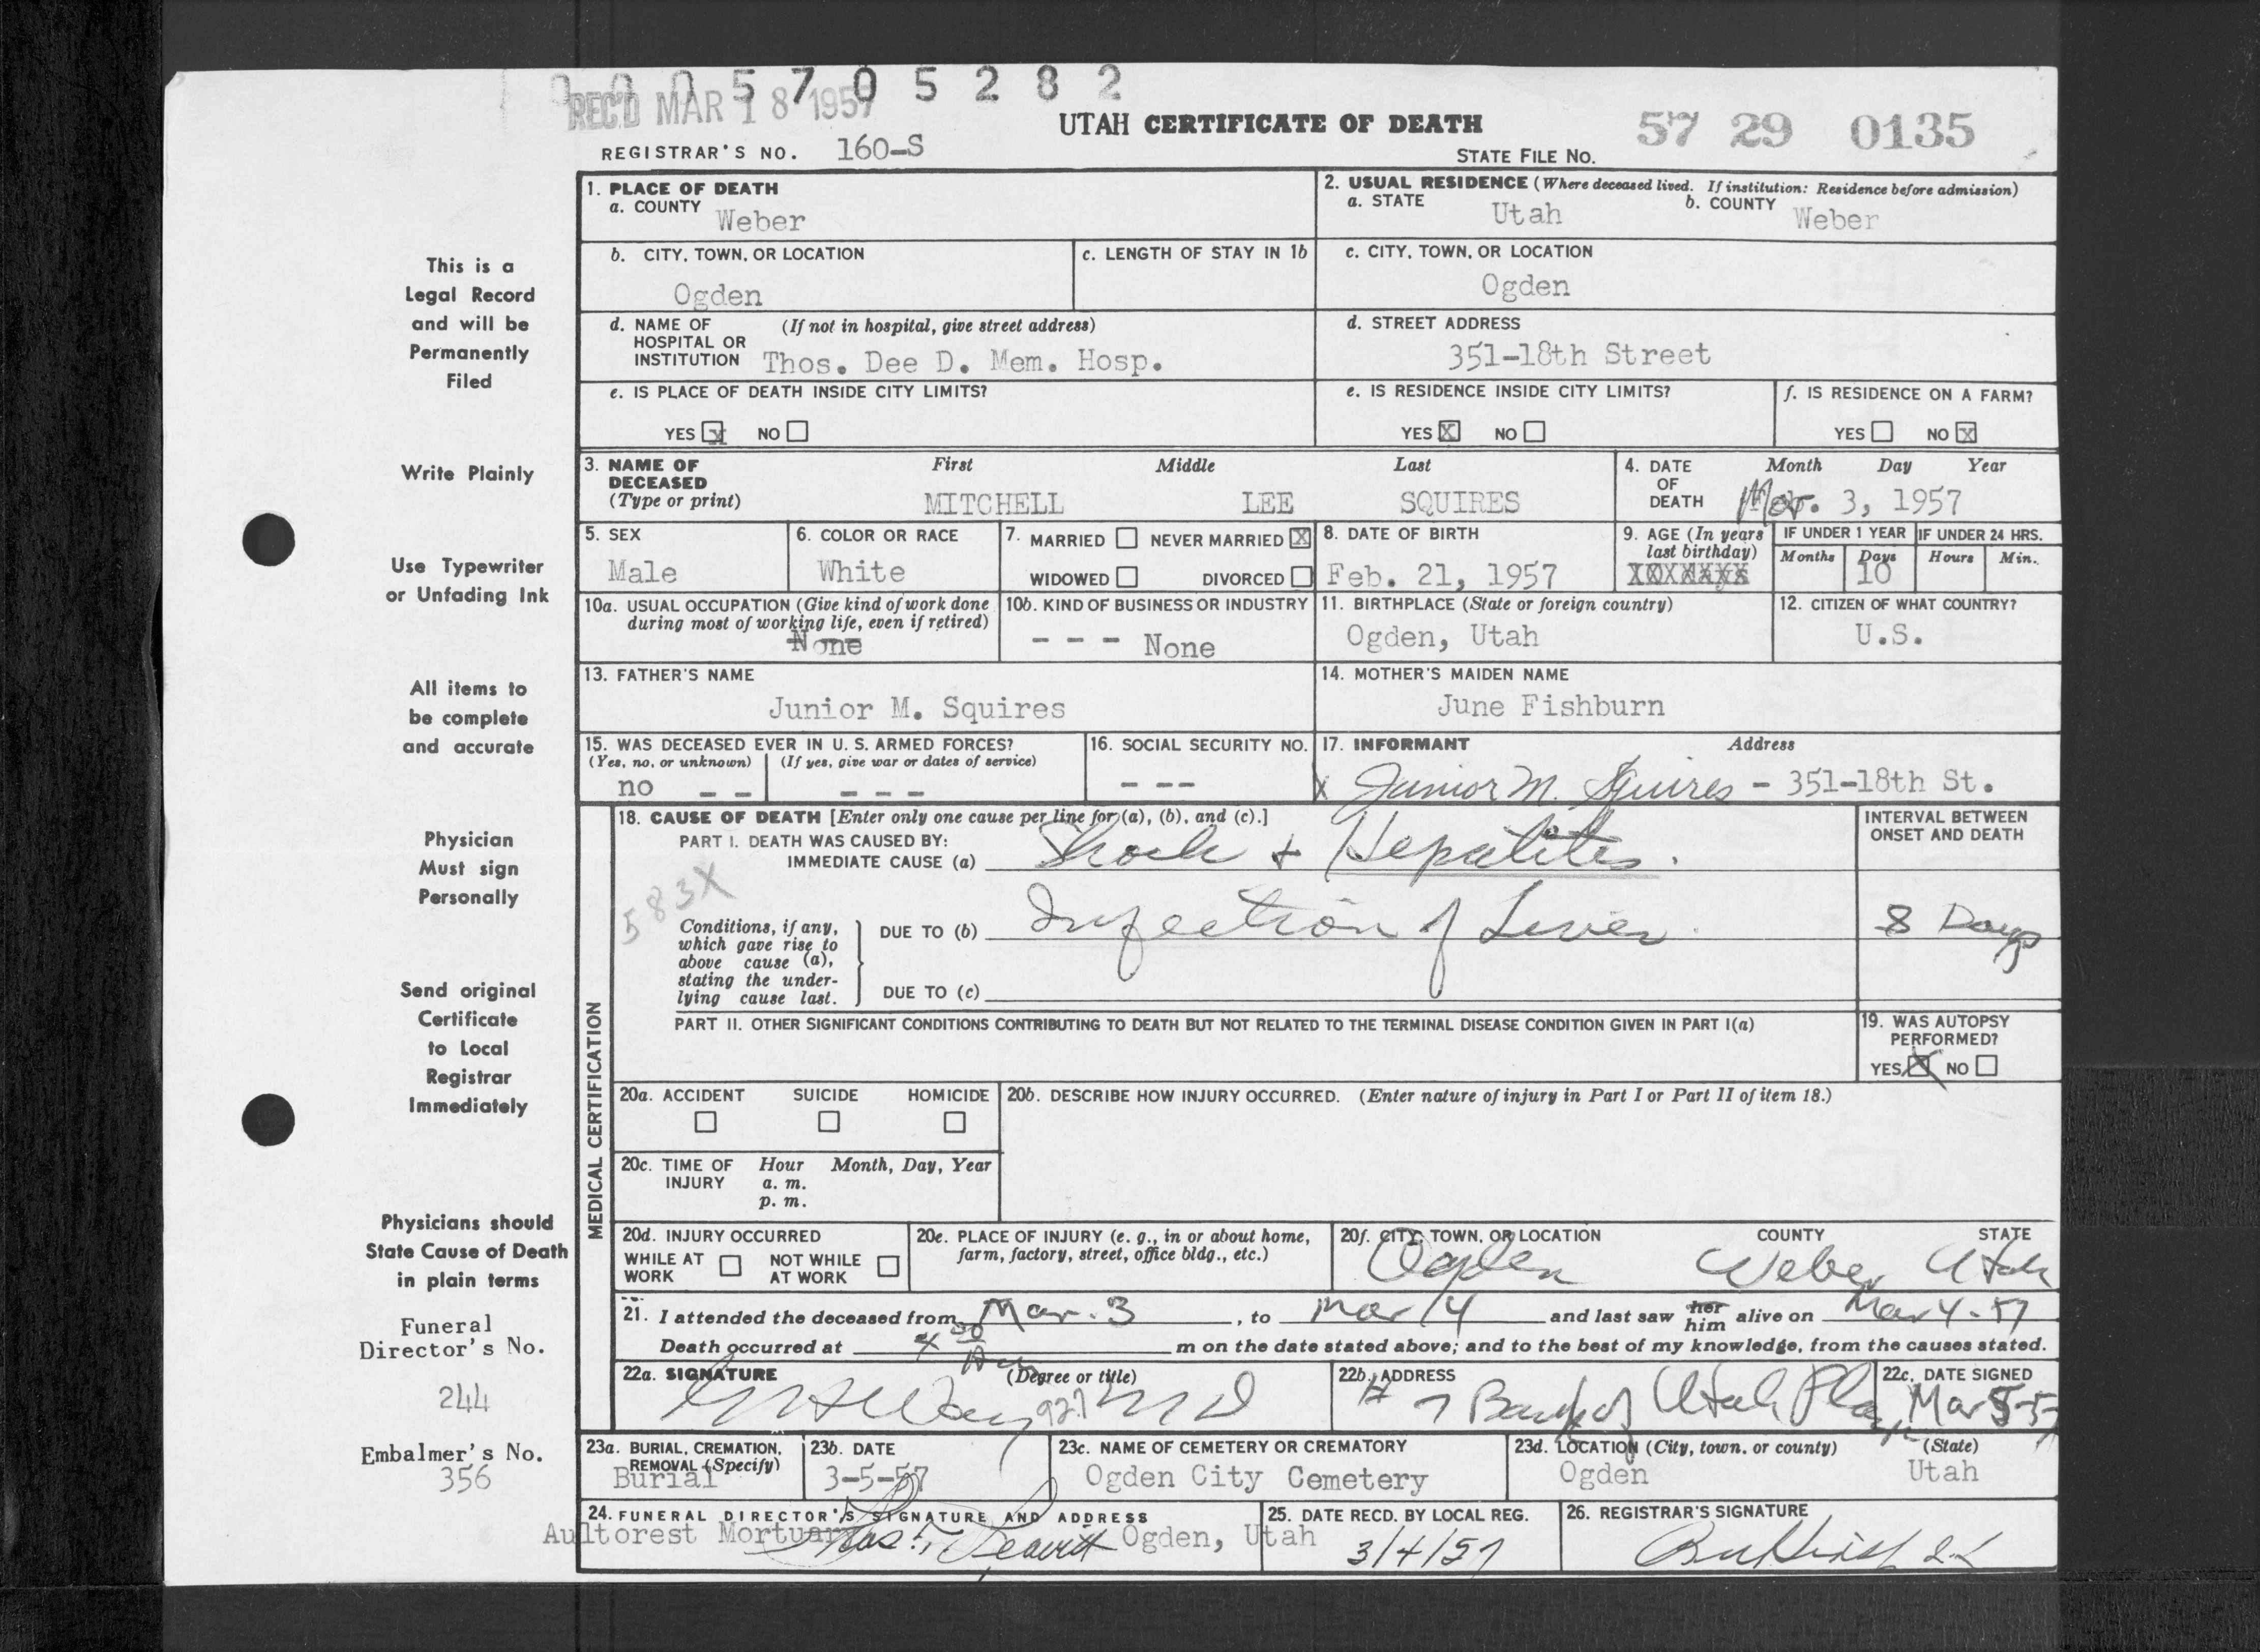 0 0 0 5 7 0 5 2 8 2
REC'D MAR 18 1957
UTAH CERTIFICATE OF DEATH
57 29 0135
REGISTRAR'S NO. 160-S
STATE FILE NO.
1. PLACE OF DEATH
a. COUNTY Weber
2. USUAL RESIDENCE (Where deceased lived. If institution: Residence before admission)
a. STATE Utah b. COUNTY Weber
b. CITY, TOWN, OR LOCATION
Ogden
c. LENGTH OF STAY IN 1b
c. CITY, TOWN, OR LOCATION
Ogden
d. NAME OF HOSPITAL OR INSTITUTION (If not in hospital, give street address)
Thos. Dee D. Mem. Hosp.
d. STREET ADDRESS
351-18th Street
e. IS PLACE OF DEATH INSIDE CITY LIMITS?
YES X NO
e. IS RESIDENCE INSIDE CITY LIMITS?
YES X NO
f. IS RESIDENCE ON A FARM?
YES NO X
3. NAME OF DECEASED (Type or print)
First Middle Last
MITCHELL LEE SQUIRES
4. DATE OF DEATH Month Day Year
Mar. 3, 1957
5. SEX
Male
6. COLOR OR RACE
White
7. MARRIED NEVER MARRIED X
WIDOWED DIVORCED
8. DATE OF BIRTH
Feb. 21, 1957
9. AGE (In years last birthday)
IF UNDER 1 YEAR
Months Days
10
IF UNDER 24 HRS.
Hours Min.
10a. USUAL OCCUPATION (Give kind of work done during most of working life, even if retired)
None
10b. KIND OF BUSINESS OR INDUSTRY
- - - None
11. BIRTHPLACE (State or foreign country)
Ogden, Utah
12. CITIZEN OF WHAT COUNTRY?
U.S.
13. FATHER'S NAME
Junior M. Squires
14. MOTHER'S MAIDEN NAME
June Fishburn
15. WAS DECEASED EVER IN U. S. ARMED FORCES?
(Yes, no, or unknown) (If yes, give war or dates of service)
no - - - - -
16. SOCIAL SECURITY NO.
- - -
17. INFORMANT Address
x Junior M. Squires - 351-18th St.
MEDICAL CERTIFICATION
18. CAUSE OF DEATH [Enter only one cause per line for (a), (b), and (c).]
PART I. DEATH WAS CAUSED BY:
IMMEDIATE CAUSE (a) Shock + Hepatitis.
INTERVAL BETWEEN ONSET AND DEATH
583X
Conditions, if any, which gave rise to above cause (a), stating the underlying cause last.
DUE TO (b) Infection of Liver.
8 Days
DUE TO (c)
PART II. OTHER SIGNIFICANT CONDITIONS CONTRIBUTING TO DEATH BUT NOT RELATED TO THE TERMINAL DISEASE CONDITION GIVEN IN PART I(a)
19. WAS AUTOPSY PERFORMED?
YES X NO
20a. ACCIDENT SUICIDE HOMICIDE
20b. DESCRIBE HOW INJURY OCCURRED. (Enter nature of injury in Part I or Part II of item 18.)
20c. TIME OF INJURY Hour Month, Day, Year
a. m.
p. m.
20d. INJURY OCCURRED
WHILE AT WORK NOT WHILE AT WORK
20e. PLACE OF INJURY (e. g., in or about home, farm, factory, street, office bldg., etc.)
20f. CITY, TOWN, OR LOCATION COUNTY STATE
Ogden Weber Utah
21. I attended the deceased from Mar. 3, to Mar 4 and last saw her him alive on Mar 4-57
Death occurred at 4 00 Am m on the date stated above; and to the best of my knowledge, from the causes stated.
22a. SIGNATURE (Degree or title)
927 MD
22b. ADDRESS
# 7 Bank of Utah Plaza
22c. DATE SIGNED
Mar 5-57
23a. BURIAL, CREMATION, REMOVAL (Specify)
Burial
23b. DATE
3-5-57
23c. NAME OF CEMETERY OR CREMATORY
Ogden City Cemetery
23d. LOCATION (City, town, or county) (State)
Ogden Utah
24. FUNERAL DIRECTOR'S SIGNATURE AND ADDRESS
Aultorest Mortuary Ogden, Utah
25. DATE RECD. BY LOCAL REG.
3/4/57
26. REGISTRAR'S SIGNATURE
This is a
Legal Record
and will be
Permanently
Filed
Write Plainly
Use Typewriter
or Unfading Ink
All items to
be complete
and accurate
Physician
Must sign
Personally
Send original
Certificate
to Local
Registrar
Immediately
Physicians should
State Cause of Death
in plain terms
Funeral
Director's No.
244
Embalmer's No.
356